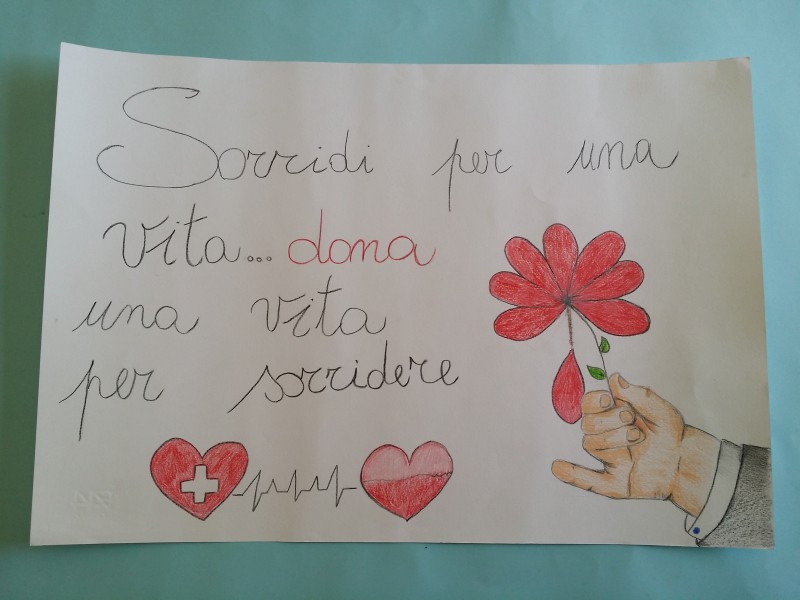 Sorridi per una
vita... dona
una vita
per sorridere